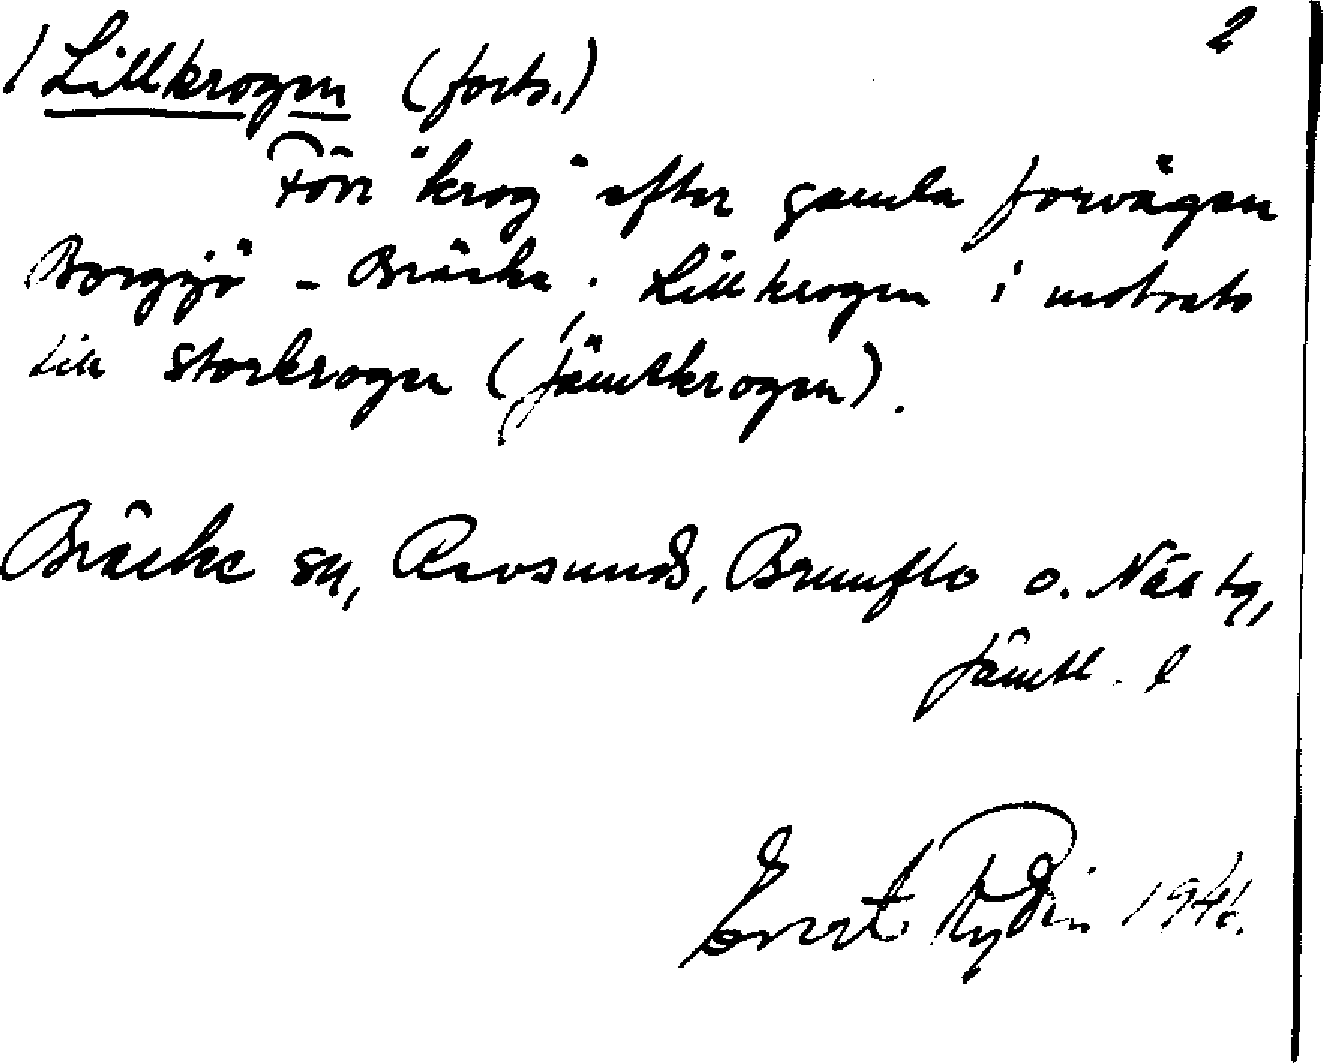 2
/ Lillkrogen (forts.)
Förr "krog" efter gamla forvägen
Borgsjö - Bräcke. Lillkrogen i motsats
till Storkrogen (Jämtkrogen).
Bräcke sn, Revsunds, Brunflo o. Näs tg,
Jämtl. l
Evert Rydin 1946.